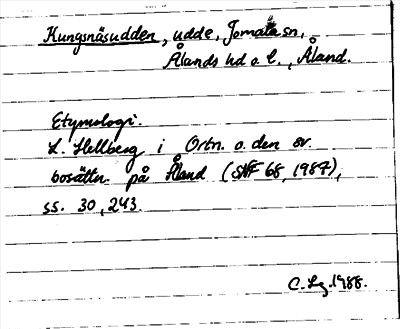 Kungsnäsudden, udde, Jomala sn,
Ålands hd o. l., Åland.
Etymologi.
L. Hellberg i Ortn. o. den sv.
bosättn. på Åland (SNF 68, 1987),
ss. 30, 243.
C. Lg. 1988.